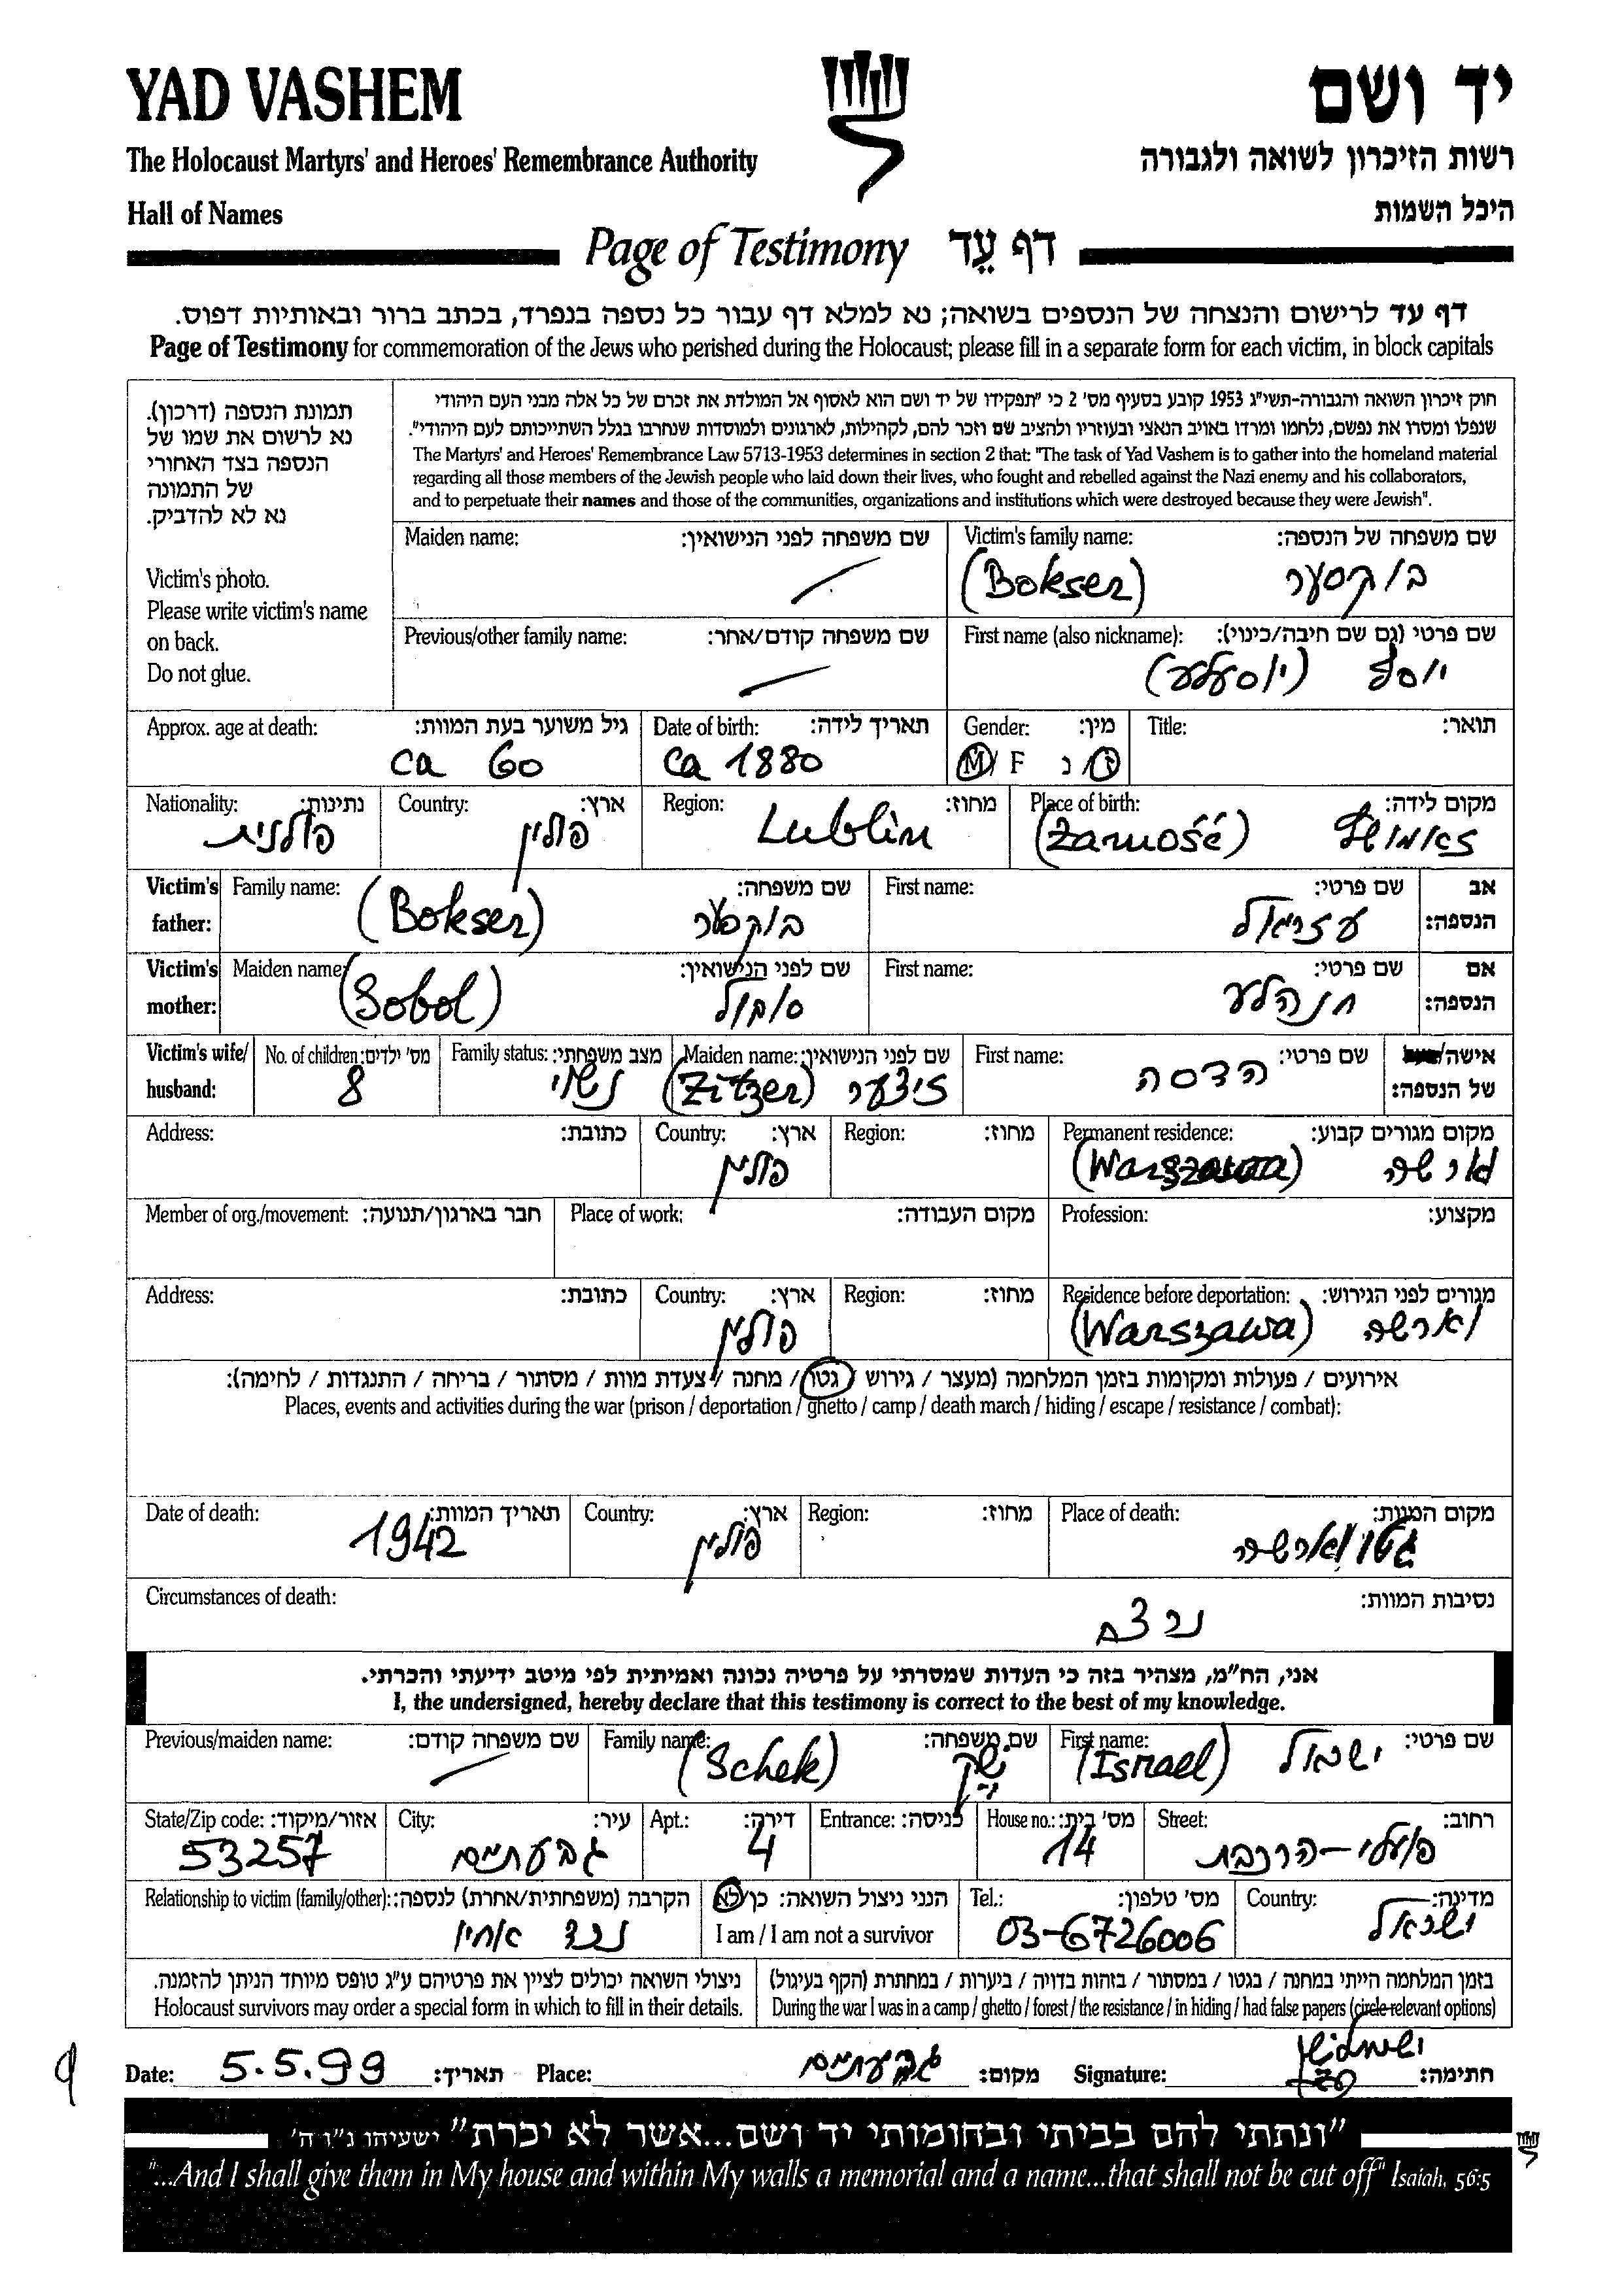 YAD VASHEM
יד ושם
The Holocaust Martyrs' and Heroes' Remembrance Authority
רשות הזיכרון לשואה ולגבורה
Hall of Names
היכל השמות
Page of Testimony דף עֵד
דף עד לרישום והנצחה של הנספים בשואה; נא למלא דף עבור כל נספה בנפרד, בכתב ברור ובאותיות דפוס.
Page of Testimony for commemoration of the Jews who perished during the Holocaust; please fill in a separate form for each victim, in block capitals
תמונת הנספה (דרכון).
נא לרשום את שמו של
הנספה בצד האחורי
של התמונה
נא לא להדביק.
Victim's photo.
Please write victim's name
on back.
Do not glue.
חוק זיכרון השואה והגבורה-תשי"ג 1953 קובע בסעיף מס' 2 כי "תפקידו של יד ושם הוא לאסוף אל המולדת את זכרם של כל אלה מבני העם היהודי
שנפלו ומסרו את נפשם, נלחמו ומרדו באויב הנאצי ובעוזריו ולהציב שם וזכר להם, לקהילות, לארגונים ולמוסדות שנחרבו בגלל השתייכותם לעם היהודי".
The Martyrs' and Heroes' Remembrance Law 5713-1953 determines in section 2 that: "The task of Yad Vashem is to gather into the homeland material
regarding all those members of the Jewish people who laid down their lives, who fought and rebelled against the Nazi enemy and his collaborators,
and to perpetuate their names and those of the communities, organizations and institutions which were destroyed because they were Jewish".
Maiden name: שם משפחה לפני הנישואין: Victim's family name: שם משפחה של הנספה:
(Bokser) בוקסער
Previous/other family name: שם משפחה קודם/אחר: First name (also nickname): שם פרטי (גם שם חיבה/כינוי):
יוסף (יוסעלע)
Approx. age at death: גיל משוער בעת המוות: Date of birth: תאריך לידה: Gender: מין: Title: תואר:
ca 60 ca 1880 M/ F ז/ נ
Nationality: נתינות: Country: ארץ: Region: מחוז: Place of birth: מקום לידה:
פולנית פולין Lublin (Zamość) זאמושץ
Victim's father: Family name: שם משפחה: First name: שם פרטי: אב הנספה:
(Bokser) בוקסער עזריאל
Victim's mother: Maiden name: שם לפני הנישואין: First name: שם פרטי: אם הנספה:
(Sobol) סובול חנהלע
Victim's wife/ husband: No. of children: מס' ילדים: Family status: מצב משפחתי: Maiden name: שם לפני הנישואין: First name: שם פרטי: אישה/ של הנספה:
8 נשוי (Zitzer) זיצער הדסה
Address: כתובת: Country: ארץ: Region: מחוז: Permanent residence: מקום מגורים קבוע:
פולין (Warszawa) וארשה
Member of org./movement: חבר בארגון/תנועה: Place of work: מקום העבודה: Profession: מקצוע:
Address: כתובת: Country: ארץ: Region: מחוז: Residence before deportation: מגורים לפני הגירוש:
פולין (Warszawa) וארשה
אירועים / פעולות ומקומות בזמן המלחמה (מעצר / גירוש / גטו / מחנה / צעדת מוות / מסתור / בריחה / התנגדות / לחימה):
Places, events and activities during the war (prison / deportation / ghetto / camp / death march / hiding / escape / resistance / combat):
Date of death: תאריך המוות: Country: ארץ: Region: מחוז: Place of death: מקום המוות:
1942 פולין גטו וארשה
Circumstances of death: נסיבות המוות:
נרצח
אני, הח"מ, מצהיר בזה כי העדות שמסרתי על פרטיה נכונה ואמיתית לפי מיטב ידיעתי והכרתי.
I, the undersigned, hereby declare that this testimony is correct to the best of my knowledge.
Previous/maiden name: שם משפחה קודם: Family name: שם משפחה: First name: שם פרטי:
(Schek) שק (Israel) ישראל
State/Zip code: אזור/מיקוד: City: עיר: Apt.: דירה: Entrance: כניסה: House no.: מס' בית: Street: רחוב:
53257 גבעתיים 4 14 פועלי-הרכבת
Relationship to victim (family/other): הקרבה (משפחתית/אחרת) לנספה: הנני ניצול השואה: כן/לא Tel.: מס' טלפון: Country: מדינה:
נכד אחיו I am / I am not a survivor 03-6726006 ישראל
ניצולי השואה יכולים לציין את פרטיהם ע"ג טופס מיוחד הניתן להזמנה.
Holocaust survivors may order a special form in which to fill in their details.
בזמן המלחמה הייתי במחנה / בגטו / במסתור / בזהות בדויה / ביערות / במחתרת (הקף בעיגול)
During the war I was in a camp / ghetto / forest / the resistance / in hiding / had false papers (circle relevant options)
Date: 5.5.99 תאריך: Place: גבעתיים מקום: Signature: חתימה:
"ונתתי להם בביתי ובחומותי יד ושם...אשר לא יכרת" ישעיהו נ"ו ה'
"...And I shall give them in My house and within My walls a memorial and a name...that shall not be cut off" Isaiah, 56:5